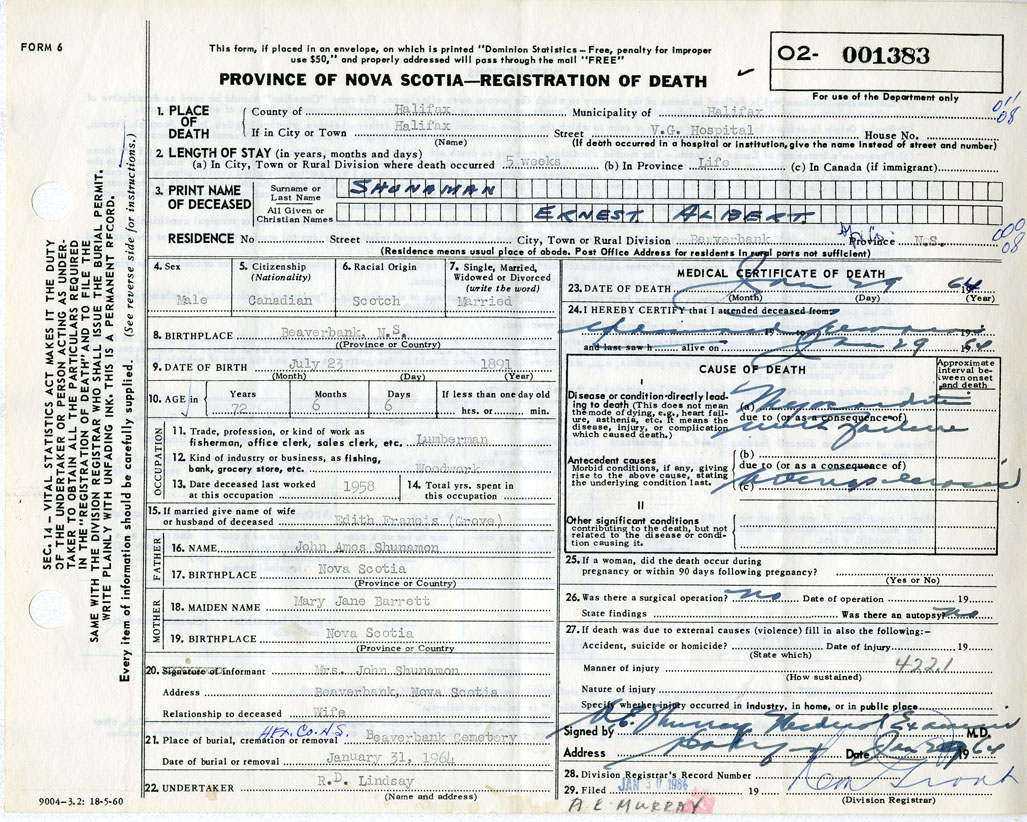 FORM 6
This form, if placed in an envelope, on which is printed "Dominion Statistics – Free, penalty for improper
use $50," and properly addressed will pass through the mail "FREE"
PROVINCE OF NOVA SCOTIA—REGISTRATION OF DEATH
02- 001383
For use of the Department only
1. PLACE OF DEATH
County of Halifax Municipality of Halifax
011
08
If in City or Town Halifax Street V.G. Hospital House No.
(Name) (If death occurred in a hospital or institution, give the name instead of street and number)
2. LENGTH OF STAY (in years, months and days)
(a) In City, Town or Rural Division where death occurred 5 weeks (b) In Province Life (c) In Canada (if immigrant)
3. PRINT NAME OF DECEASED
Surname or Last Name SHUNAMAN
All Given or Christian Names ERNEST ALBERT
RESIDENCE No Street City, Town or Rural Division Beaverbank Province N.S.
000
08
(Residence means usual place of abode. Post Office Address for residents in rural parts not sufficient)
4. Sex Male
5. Citizenship (Nationality) Canadian
6. Racial Origin Scotch
7. Single, Married, Widowed or Divorced (write the word) Married
8. BIRTHPLACE Beaverbank, N.S.
(Province or Country)
9. DATE OF BIRTH July 23 1891
(Month) (Day) (Year)
10. AGE in Years Months Days If less than one day old
72 6 6 hrs. or min.
OCCUPATION
11. Trade, profession, or kind of work as
fisherman, office clerk, sales clerk, etc. Lumberman
12. Kind of industry or business, as fishing,
bank, grocery store, etc. Woodwork
13. Date deceased last worked at this occupation 1958
14. Total yrs. spent in this occupation
15. If married give name of wife
or husband of deceased Edith Francis (Grove)
FATHER
16. NAME John Amos Shunamon
17. BIRTHPLACE Nova Scotia
(Province or Country)
MOTHER
18. MAIDEN NAME Mary Jane Barrett
19. BIRTHPLACE Nova Scotia
(Province or Country
20. Signature of informant Mrs. John Shunamon
Address Beaverbank, Nova Scotia
Relationship to deceased Wife
Hfx. Co. N.S.
21. Place of burial, cremation or removal Beaverbank Cemetery
Date of burial or removal January 31, 1964
22. UNDERTAKER R.D. Lindsay
(Name and address)
9004–3.2: 18-5-60
MEDICAL CERTIFICATE OF DEATH
23. DATE OF DEATH Jan 29 1964
(Month) (Day) (Year)
24. I HEREBY CERTIFY that I attended deceased from
19 to 19
and last saw h alive on Jan 29 1964
CAUSE OF DEATH
Approximate interval between onset and death
I
Disease or condition directly leading to death (This does not mean the mode of dying, e.g., heart failure, asthenia, etc. It means the disease, injury, or complication which caused death.)
(a)
due to (or as a consequence of)
failure
Antecedent causes
Morbid conditions, if any, giving rise to the above cause, stating the underlying condition last.
(b)
due to (or as a consequence of)
(c)
II
Other significant conditions
contributing to the death, but not related to the disease or condition causing it.
25. If a woman, did the death occur during
pregnancy or within 90 days following pregnancy?
(Yes or No)
26. Was there a surgical operation? no Date of operation 19
State findings Was there an autopsy? no
27. If death was due to external causes (violence) fill in also the following:–
Accident, suicide or homicide? Date of injury 19
(State which)
Manner of injury 4221
(How sustained)
Nature of injury
Specify whether injury occurred in Industry, in home, or in public place
Signed by A.E. Murray Medical Examiner M.D.
Address Date Jan 29 1964
28. Division Registrar's Record Number
29. Filed JAN 30 1964 19
(Division Registrar)
A E MURRAY
SEC. 14 – VITAL STATISTICS ACT MAKES IT THE DUTY
OF THE UNDERTAKER OR PERSON ACTING AS UNDER-
TAKER TO OBTAIN ALL THE PARTICULARS REQUIRED
IN THE "REGISTRATION OF DEATH" AND TO FILE THE
SAME WITH THE DIVISION REGISTRAR WHO SHALL ISSUE THE BURIAL PERMIT.
WRITE PLAINLY WITH UNFADING INK. THIS IS A PERMANENT RECORD.
Every item of information should be carefully supplied. (See reverse side for instructions.)